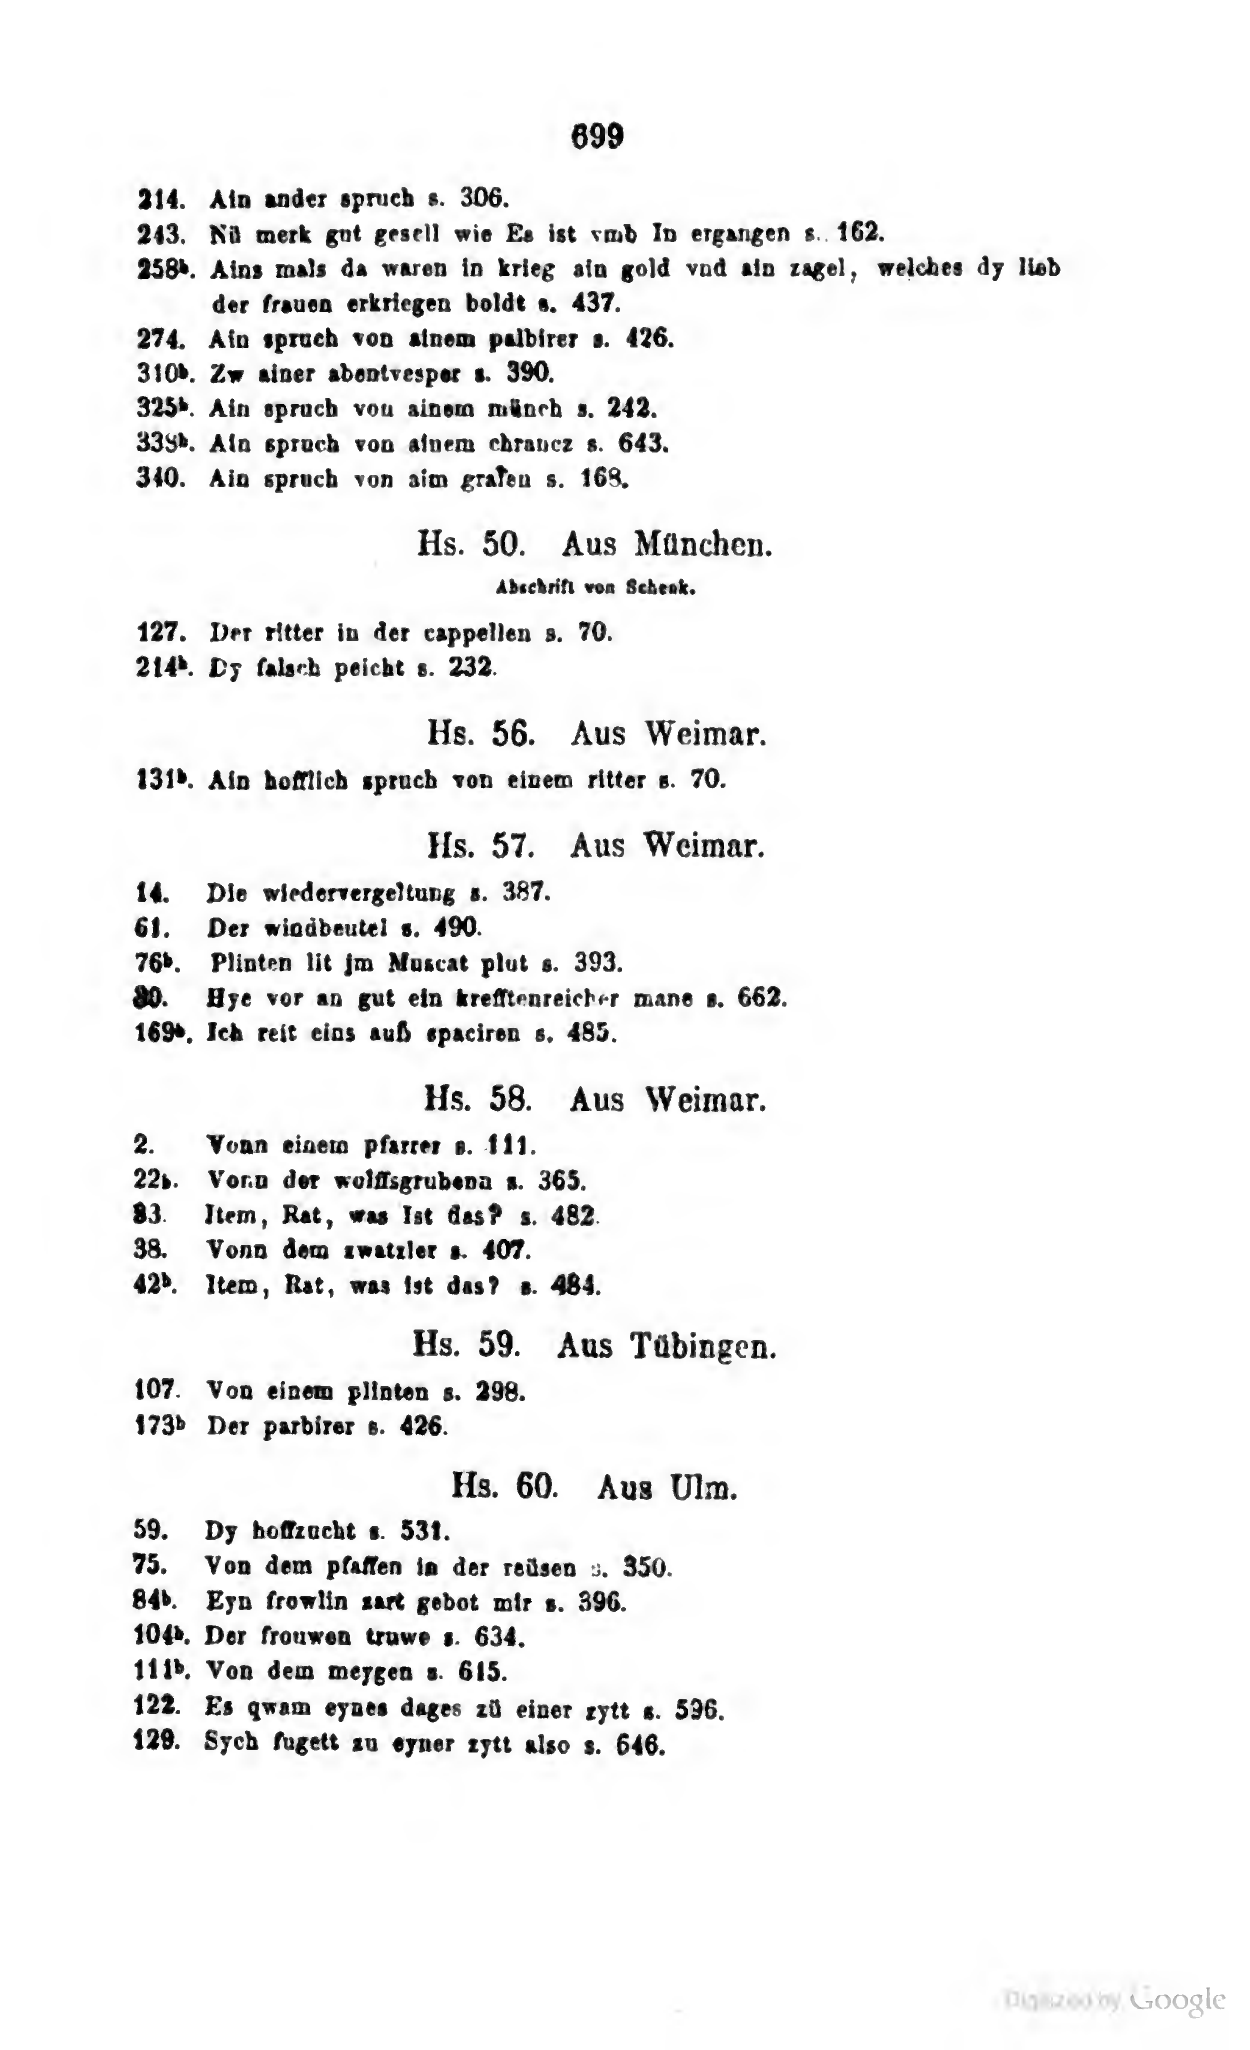 699
214. Ain ander spruch s. 306.
243. Nü merk gut gesell wie Es ist vmb In ergangen s. 162.
258b. Ains mals da waren in krieg ain gold vnd ain zagel, welches dy lieb
der frauen erkriegen boldt s. 437.
274. Ain spruch von ainem palbirer s. 426.
310b. Zw ainer abentvesper s. 390.
325b. Ain spruch von ainem münch s. 242.
338b. Ain spruch von ainem chrancz s. 643.
340. Ain spruch von aim grafen s. 168.
Hs. 50. Aus München.
Abschrift von Schenk.
127. Der ritter in der cappellen s. 70.
214b. Dy falsch peicht s. 232.
Hs. 56. Aus Weimar.
131b. Ain hofflich spruch von einem ritter s. 70.
Hs. 57. Aus Weimar.
14. Die wiedervergeltung s. 387.
61. Der windbeutel s. 490.
76b. Plinten lit jm Muscat plut s. 393.
80. Hye vor an gut ein krefftenreicher mane s. 662.
169b. Ich reit eins auß spaciren s. 485.
Hs. 58. Aus Weimar.
2. Vonn einem pfarrer s. 111.
22b. Vonn der wolffsgrubenn s. 365.
33. Item, Rat, was Ist das? s. 482.
38. Vonn dem zwatzler s. 407.
42b. Item, Rat, was ist das? s. 484.
Hs. 59. Aus Tübingen.
107. Von einem plinten s. 298.
173b Der parbirer s. 426.
Hs. 60. Aus Ulm.
59. Dy hoffzucht s. 531.
75. Von dem pfaffen in der reüsen s. 350.
84b. Eyn frowlin zart gebot mir s. 396.
104b. Der frouwen truwe s. 634.
111b. Von dem meygen s. 615.
122. Es qwam eynes dages zü einer zytt s. 596.
129. Sych fugett zu eyner zytt also s. 646.
Digitized by Google